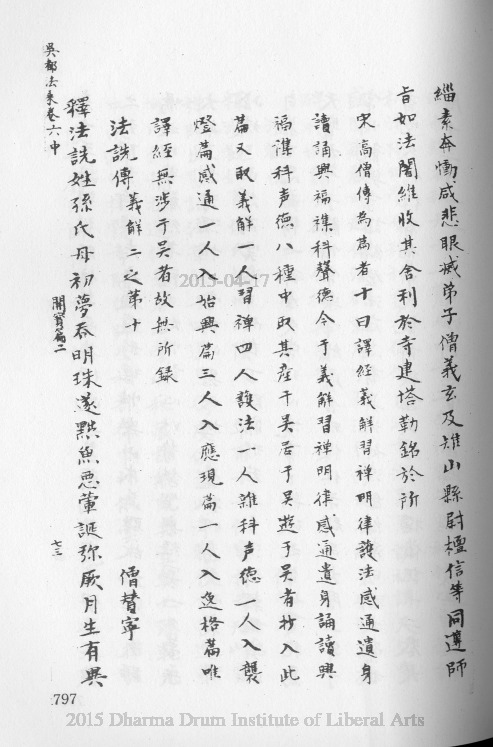 緇素奔慟咸悲眼滅弟子僧義玄及雉山縣尉檀信等同遵師
旨如法闍維收其舍利於寺建塔勒銘於所
宋高僧傳為篇者十曰譯經義解習禪明律護法感通遺身
讀誦興福襍科聲德今于義解習禪明律感通遺身誦讀興
福襍科声德八種中取其産于吳居于吳遊于吳者抄入此
篇又取義解一人習禪四人護法一人雜科声德一人入襲
燈篇感通一人入始興篇三人入應現篇一人入逸格篇唯
譯經無涉于吳者故無所録
法詵傳義解二之第十
僧賛寧
釋法詵姓孫氏母初夢吞明珠遂黜魚惡葷誕弥厥月生有異
吳都法乘卷六中
開寶篇二
七三
797
2015-04-17
2015 Dharma Drum Institute of Liberal Arts